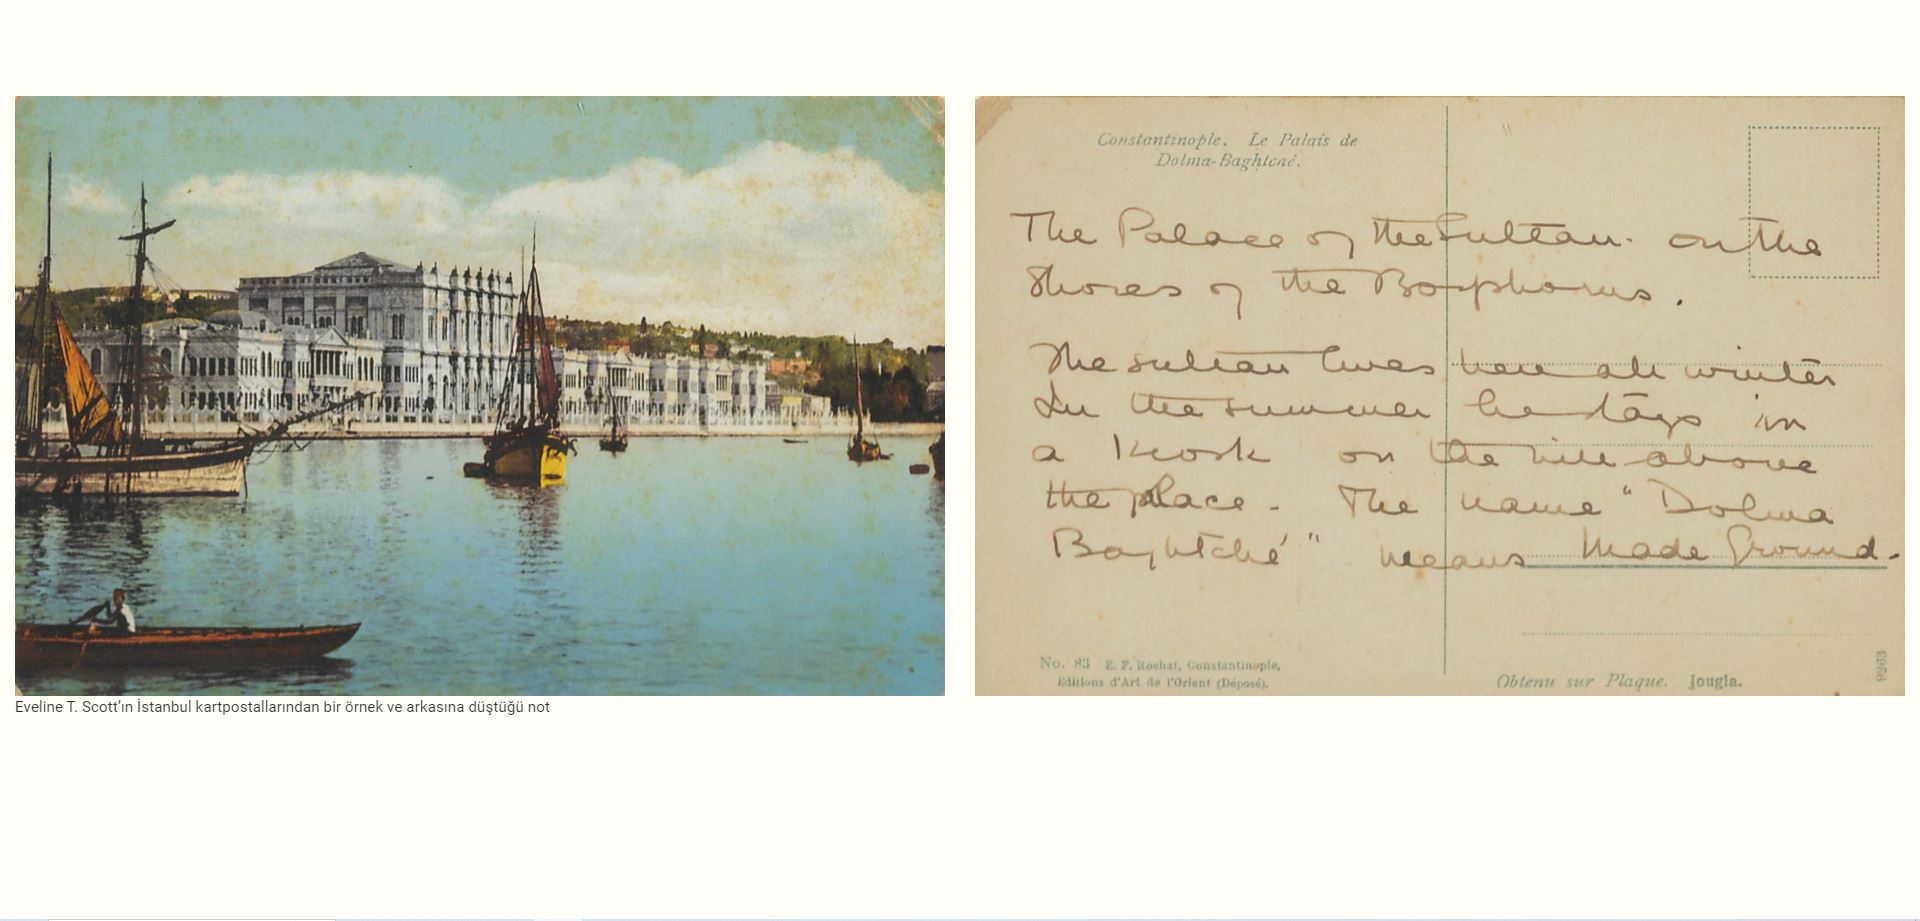 Constantinople. Le Palais de
Dolma-Baghtché.
The Palace of the Sultan. on the
Shores of the Bosphorus.
The sultan lives here all winter
In the summer he stays in
a Kiosk on the hill above
the place. The name "Dolma
Baghtché" means Made Ground.
No. 83 E. F. Rochat, Constantinople,
Editions d'Art de l'Orient (Déposé).
Obtenu sur Plaque. Jougla.
9263
Eveline T. Scott’ın İstanbul kartpostallarından bir örnek ve arkasına düştüğü not